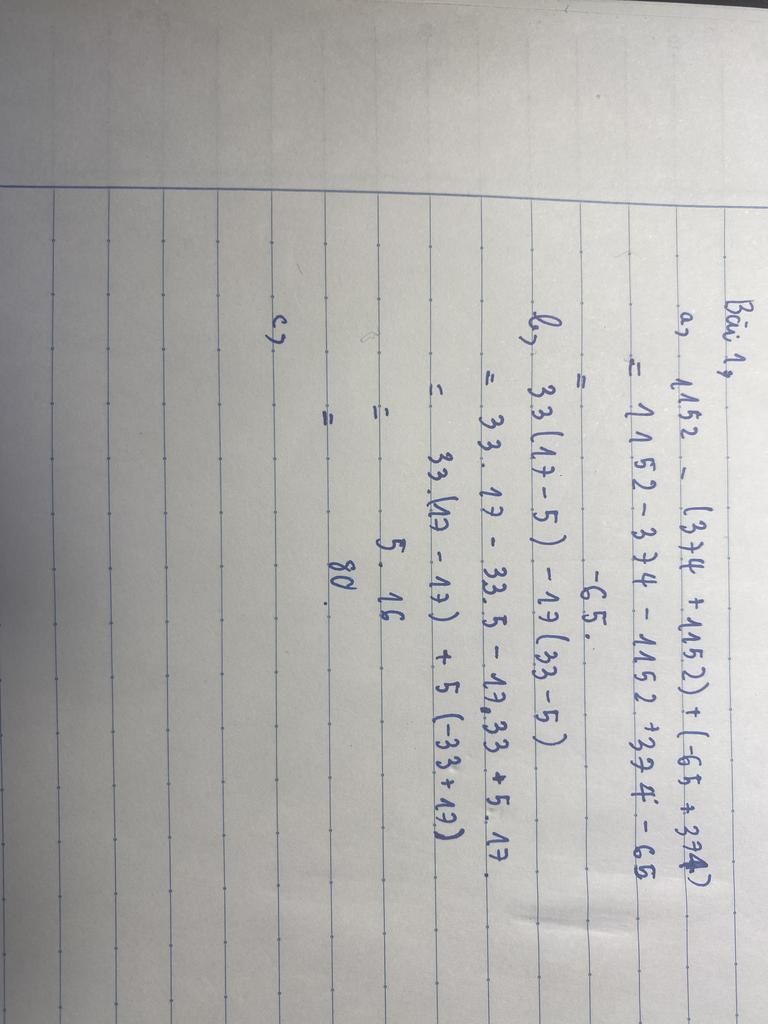 Bài 1,
a, 1152 - (374 + 1152) + (-65 + 374)
= 1152 - 374 - 1152 + 374 - 65
= -65.
b, 33(17 - 5) - 17(33 - 5)
= 33.17 - 33.5 - 17.33 + 5.17
= 33.(17 - 17) + 5(-33 + 17)
= 5.16
= 80.
c,